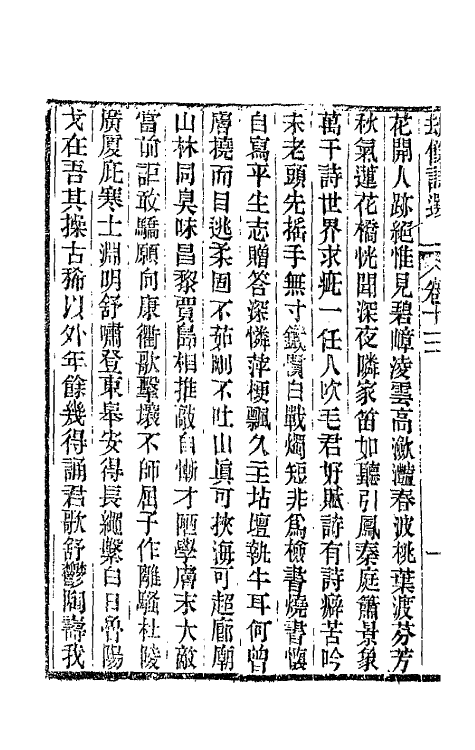 詩選 卷十三 一
花開人跡絕惟見碧嶂凌雲高瀲灩春波桃葉渡芬芳
秋氣蓮花橋恍聞深夜隣家笛如聽引鳳秦庭簫景象
萬千詩世界求疵一任人吹毛君好賦詩有詩癖苦吟
未老頭先搖手無寸鐵實白戰燭短非爲檢書燒書懷
自寫平生志贈答深憐萍梗飄久主坫壇執牛耳何曾
膚撓而目逃柔固不茹剛不吐山眞可挾海可超廊廟
山林同臭味昌黎賈島相推敲自慚才陋學膚末大敵
當前詎敢驕願向康衢歌擊壤不師屈子作離騷杜陵
廣厦庇寒士淵明舒嘯登東皋安得長繩繫白日魯陽
戈在吾其操古稀以外年餘幾得誦君歌舒鬱陶壽我